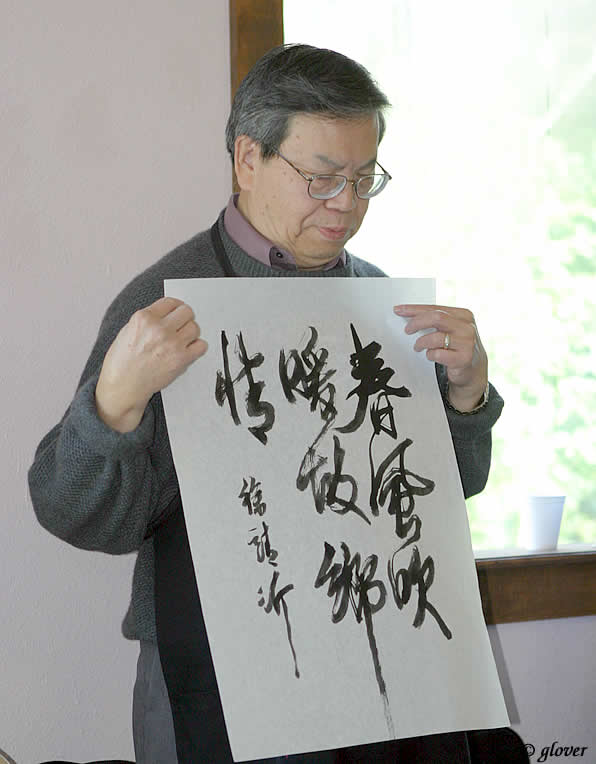 春風吹
暖故鄉
情
© glover